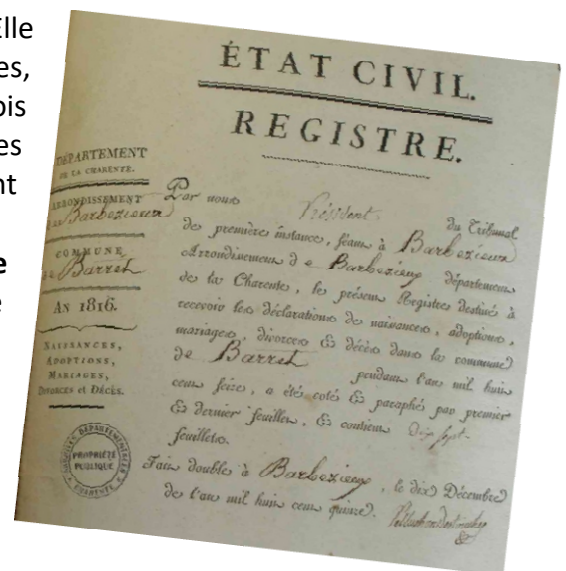 Elle
es,
ois
es
nt
e
e
ÉTAT CIVIL.
REGISTRE.
DÉPARTEMENT
DE LA CHARENTE.
ARRONDISSEMENT
de Barbezieux
COMMUNE
de Barret
AN 1816.
NAISSANCES,
ADOPTIONS,
MARIAGES,
DIVORCES et DÉCÈS.
Par nous Président du Tribunal
de première instance, séant à Barbezieux
Arrondissement de Barbezieux département
de la Charente, le présent Registre destiné à
recevoir les déclarations de naissances, adoptions,
mariages, divorces & décès dans la commune
de Barret pendant l'an mil huit
cent seize, a été coté & paraphé par premier
& dernier feuillet, & contient dix sept
feuillets.
Fait double à Barbezieux, le dix Décembre
de l'an mil huit cent quinze.
ARCHIVES DÉPARTEMENTALES
PROPRIÉTÉ
PUBLIQUE
CHARENTE